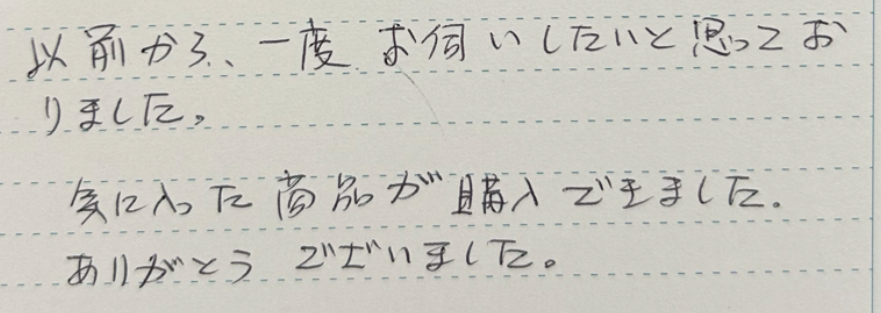 以前から、一度お伺いしたいと思ってお
りました。
気に入った商品が購入できました.
ありがとうございました。